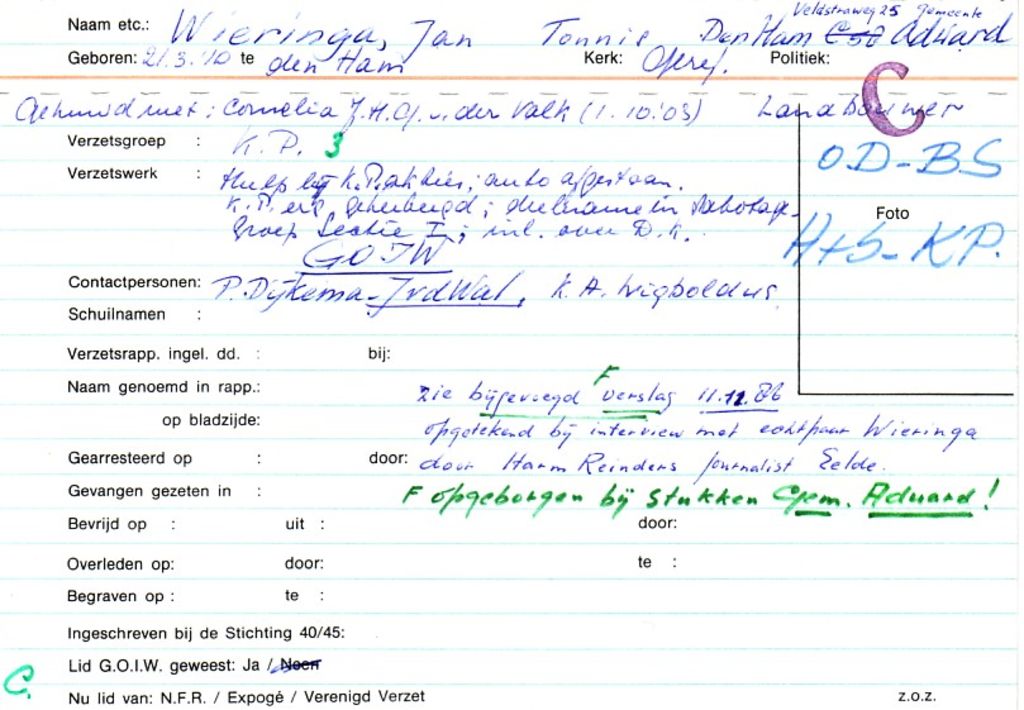 Veldstraweg 25 gemeente
Naam etc.: Wieringa, Jan Tonnis Den Ham C50 Aduard
Geboren: 21.3.'10 te den Ham Kerk: Geref. Politiek:
C
Gehuwd met: Cornelia J.H.G. v. der Valk (1.10.'05) Landbouwer
Verzetsgroep : K.P. 3
OD-BS
Verzetswerk : Hulp bij K.P. akties; auto afgestaan.
K.P.ers geherbergd; deelname in Sabotage-
Foto
groep Sectie I; inl. over D.K.
H+S-KP.
GOIW
Contactpersonen: P. Dijkema - JvdWal, K.A. Wigboldus
Schuilnamen :
Verzetsrapp. ingel. dd. : bij:
F
Naam genoemd in rapp.: zie bijgevoegd verslag 11.12.86
op bladzijde: opgetekend bij interview met echtpaar Wieringa
Gearresteerd op : door: door Harm Reinders journalist Eelde.
Gevangen gezeten in : F opgeborgen bij Stukken Gem. Aduard!
Bevrijd op : uit : door:
Overleden op: door: te :
Begraven op : te :
Ingeschreven bij de Stichting 40/45:
Lid G.O.I.W. geweest: Ja / Neen
C.
Nu lid van: N.F.R. / Expogé / Verenigd Verzet z.o.z.